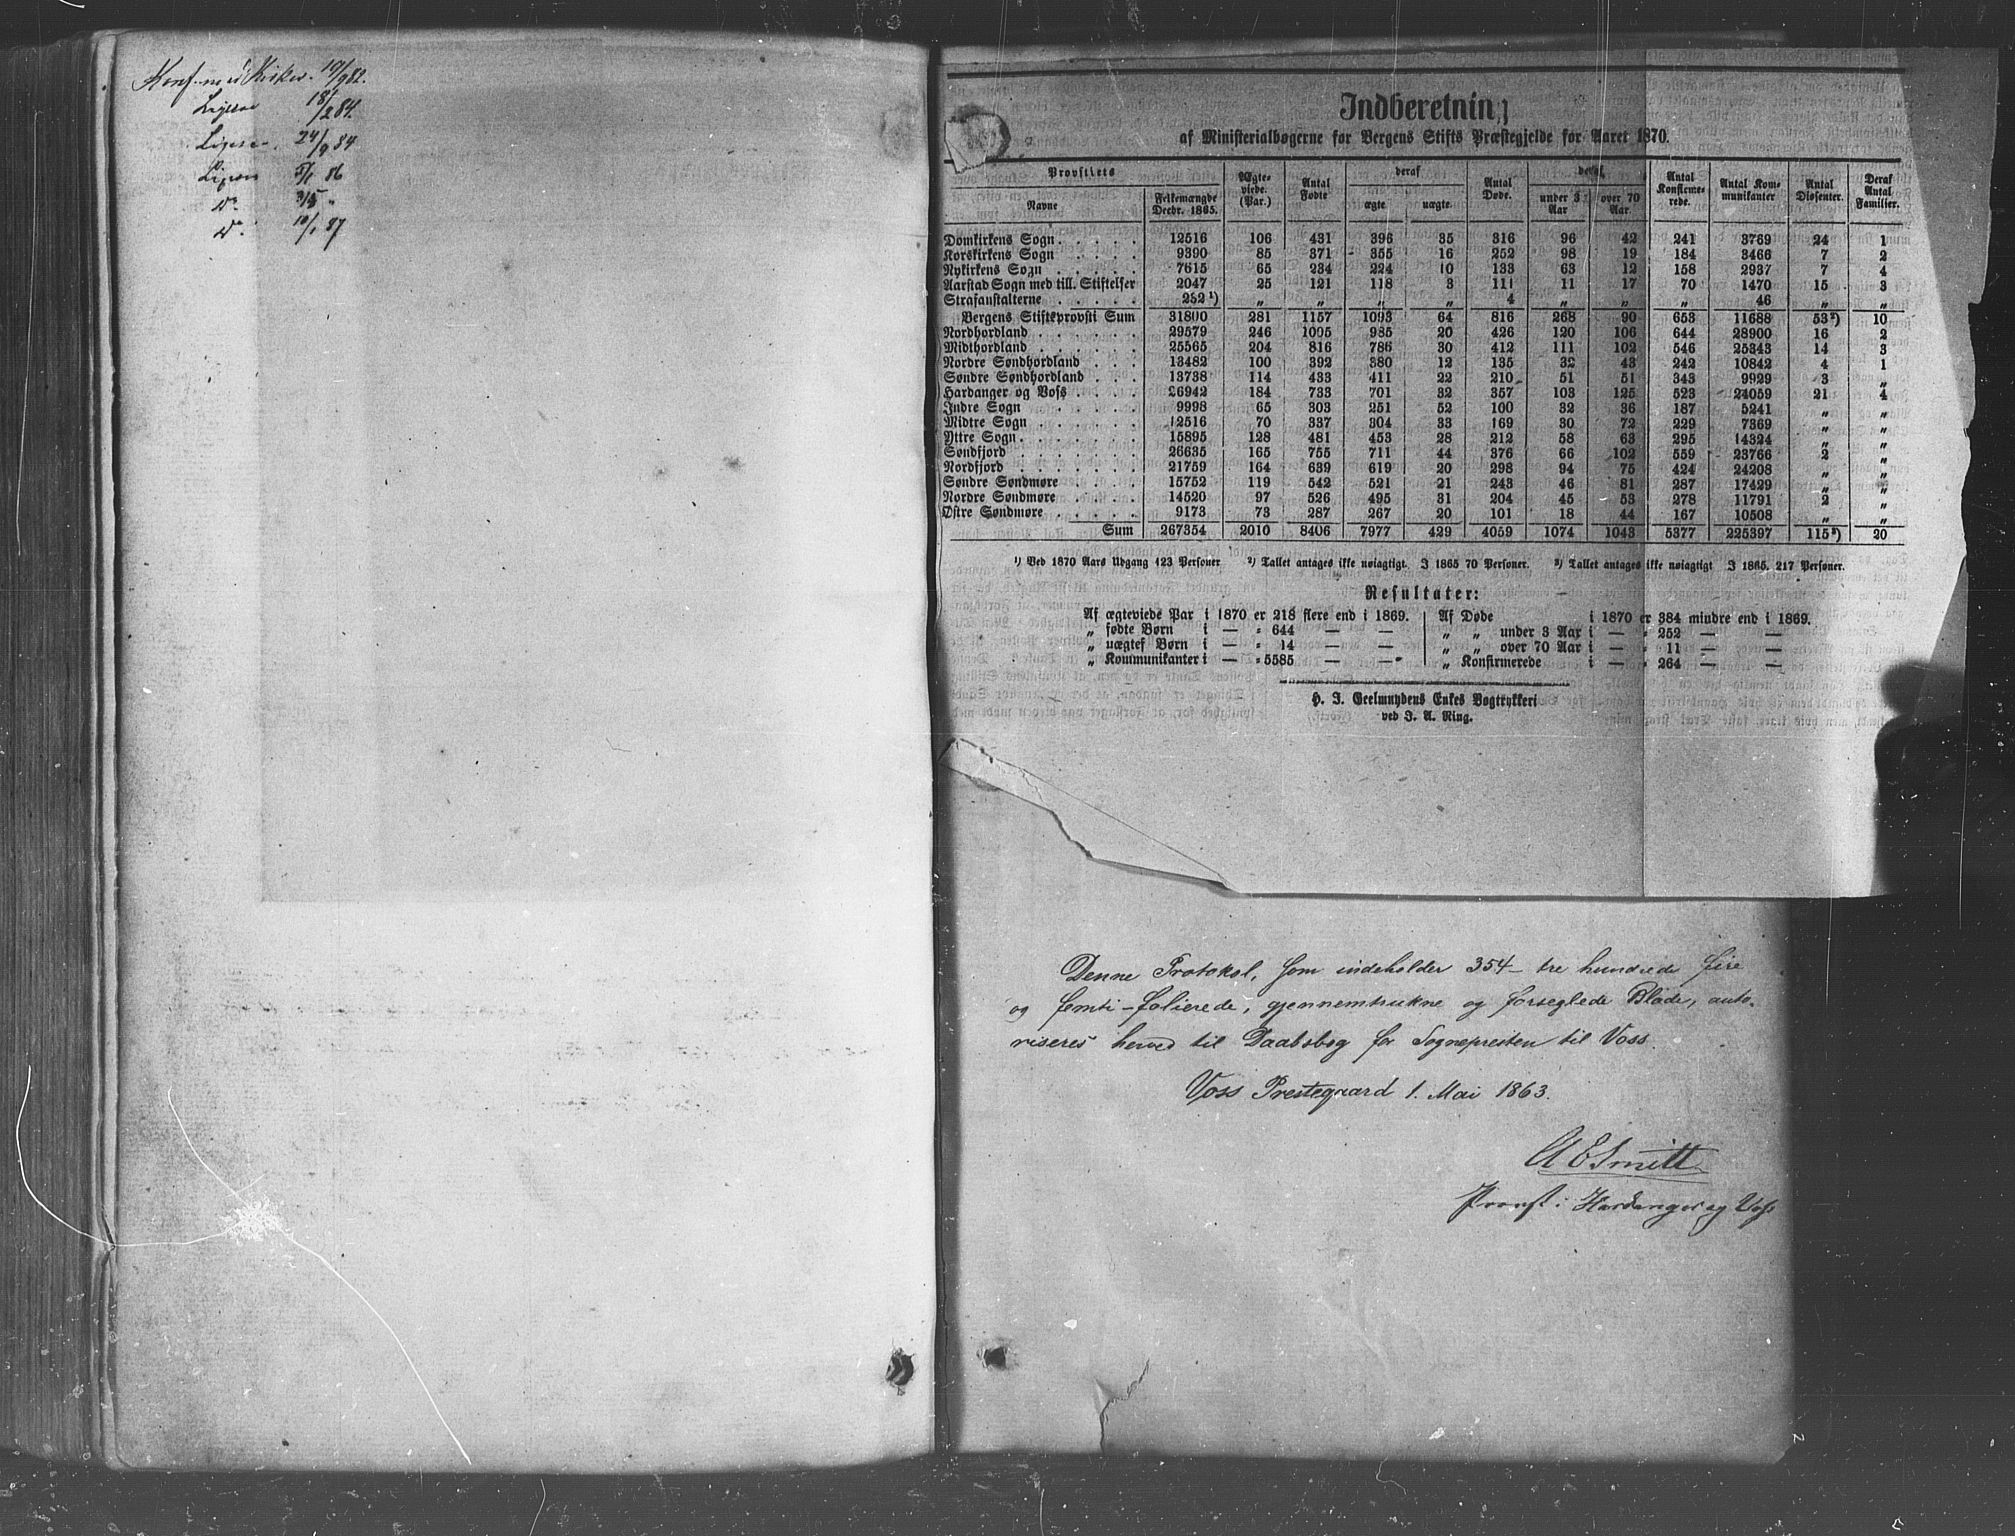 Konf. m. Kirker. 10/9 82.
18/2 84.
24/9 84
5/1 86
Do 3/5 "
Do 10/1 87
Indberetning
af Ministerialbøgerne for Bergens Stifts Præstegjelde for Aaret 1870.
Provstiets Navne | Folkemængde Decbr. 1865. | Ægteviede. (Par.) | Antal Fødte | deraf ægte | uægte. | Antal Døde. | deraf under 3 Aar | over 70 Aar | Antal Konfirmerede. | Antal Kommunikanter | Antal Dissenter. | Deraf Antal Familier.
Domkirkens Sogn . . . . . 12516 106 431 396 35 316 96 42 241 3769 24 1
Korskirkens Sogn . . . . 9390 85 371 355 16 252 98 19 184 3466 7 2
Nykirkens Sogn . . . . . 7615 65 234 224 10 133 63 12 158 2937 7 4
Aarstad Sogn med till. Stiftelser 2047 25 121 118 3 111 11 17 70 1470 15 3
Strafanstalterne . . . . . 232 ¹) „ „ „ „ 4 „ „ „ 46 „ „
Bergens Stiftsprovsti Sum 31800 281 1157 1093 64 816 268 90 653 11688 53²) 10
Nordhordland . . . . . . 29579 246 1095 985 20 426 120 106 644 28900 16 2
Midthordland . . . . . . 25565 204 816 786 30 412 111 102 546 25343 14 3
Nordre Søndhordland . . . 13482 100 392 380 12 135 32 43 242 10842 4 1
Søndre Søndhordland . . . 13738 114 433 411 22 210 51 51 343 9929 3 „
Hardanger og Voss . . . . 26942 184 733 701 32 357 103 125 523 24059 21 4
Indre Sogn . . . . . . 9998 65 303 251 52 100 32 36 187 5241 „ „
Midtre Sogn . . . . . . 12516 70 337 304 33 169 30 72 229 7369 „ „
Yttre Sogn . . . . . . . 15895 128 481 453 28 212 58 63 295 14324 „ „
Søndfjord . . . . . . . 26635 165 755 711 44 376 66 102 559 23766 2 „
Nordfjord . . . . . . . 21759 164 639 619 20 298 94 75 424 24208 „ „
Søndre Søndmøre . . . . 15752 119 542 521 21 243 46 81 287 17429 „ „
Nordre Søndmøre . . . . 14520 97 526 495 31 204 45 53 278 11791 2 „
Østre Søndmøre . . . . . 9173 73 287 267 20 101 18 44 167 10508 „ „
Sum 267354 2010 8406 7977 429 4059 1074 1043 5377 225397 115³) 20
¹) Ved 1870 Aars Udgang 123 Personer ²) Tallet antages ikke nøiagtigt. I 1865 70 Personer. ³) Tallet antages ikke nøiagtigt I 1865. 217 Personer.
Resultater:
Af ægteviede Par i 1870 er 218 flere end i 1869.
„ fødte Børn i — = 644 — —
„ uægtef Børn i — = 14 — —
„ Kommunikanter i — = 5585 — —
Af Døde i 1870 er 384 mindre end i 1869.
„ „ under 3 Aar i — = 252 — —
„ „ over 70 Aar i — = 11 — —
„ Konfirmerede i — = 264 — —
H. J. Geelmuydens Enkes Bogtrykkeri
ved J. A. Ring.
Denne Protokol, som indeholder 354 – tre hundrede fire
og femti – folierede, gjennemtrukne og forseglede Blade, auto-
riseres herved til Daabsbog for Sognepresten til Voss.
Voss Prestegaard 1. Mai 1863.
A E Smitt
Provst i Hardanger og Voss